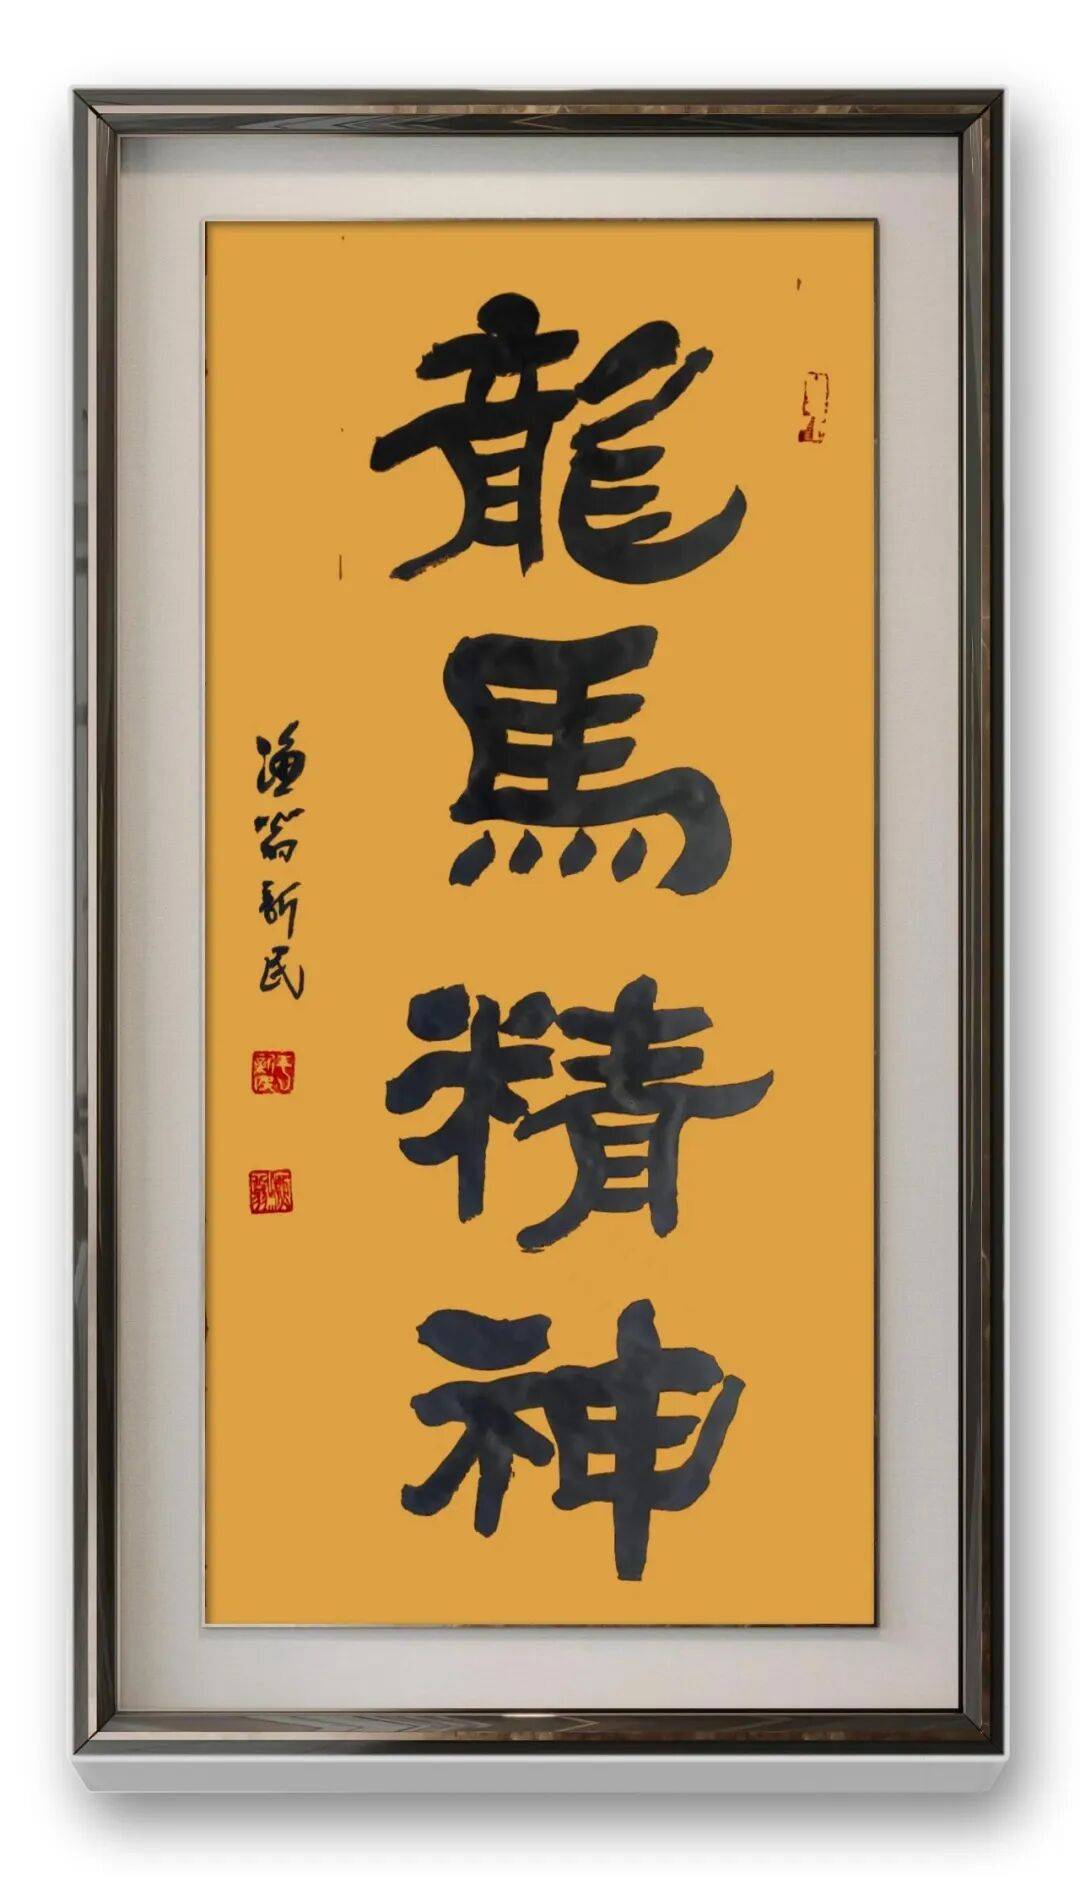 龍馬精神
漁翁新民